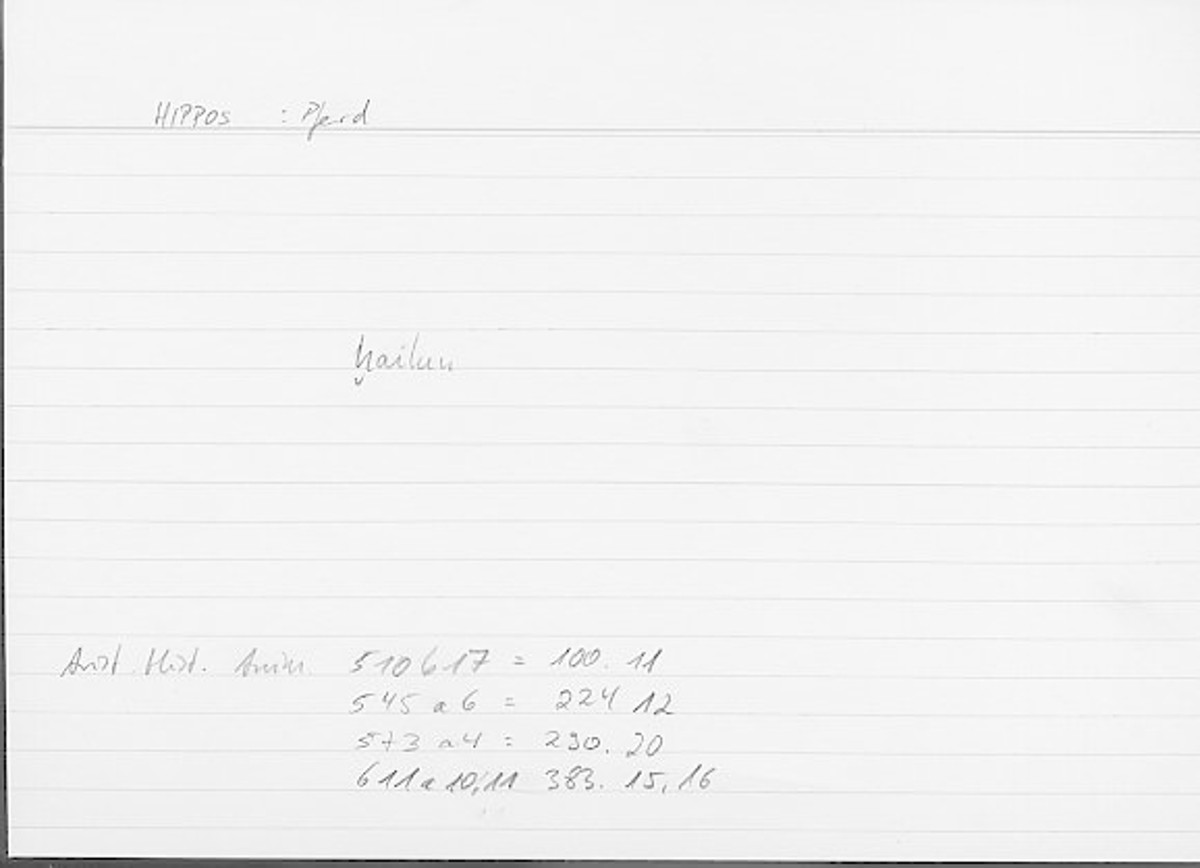 HIPPOS : Pferd
ḫailun
Arist. Hist. Anim. 510 b 17 = 100. 11
545 a 6 = 224 12
573 a 4 = 290. 20
611 a 10,11 383. 15, 16